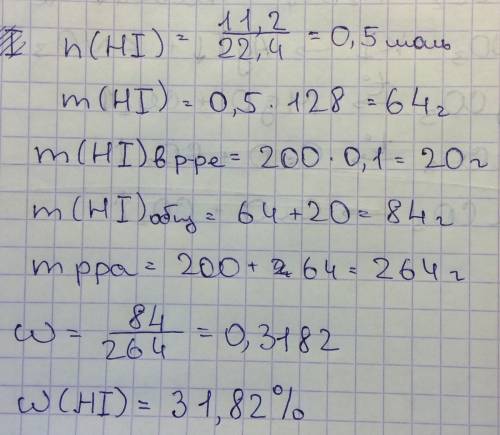 n(HI) = 11,2/22,4 = 0,5 моль
m(HI) = 0,5 · 128 = 64 г
m(HI) в р-ре = 200 · 0,1 = 20 г
m(HI) общ = 64 + 20 = 84 г
m рра = 200 + 64 = 264 г
ω = 84/264 = 0,3182
ω(HI) = 31,82%